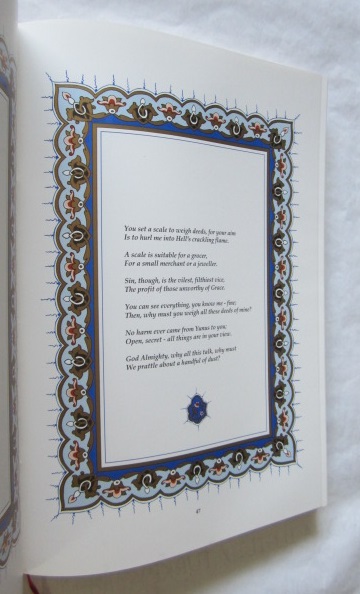 You set a scale to weigh deeds, for your aim
Is to hurl me into Hell's crackling flame.
A scale is suitable for a grocer,
For a small merchant or a jeweller.
Sin, though, is the vilest, filthiest vice,
The profit of those unworthy of Grace.
You can see everything, you know me - fine;
Then, why must you weigh all these deeds of mine?
No harm ever came from Yunus to you;
Open, secret - all things are in your view.
God Almighty, why all this talk, why must
We prattle about a handful of dust?